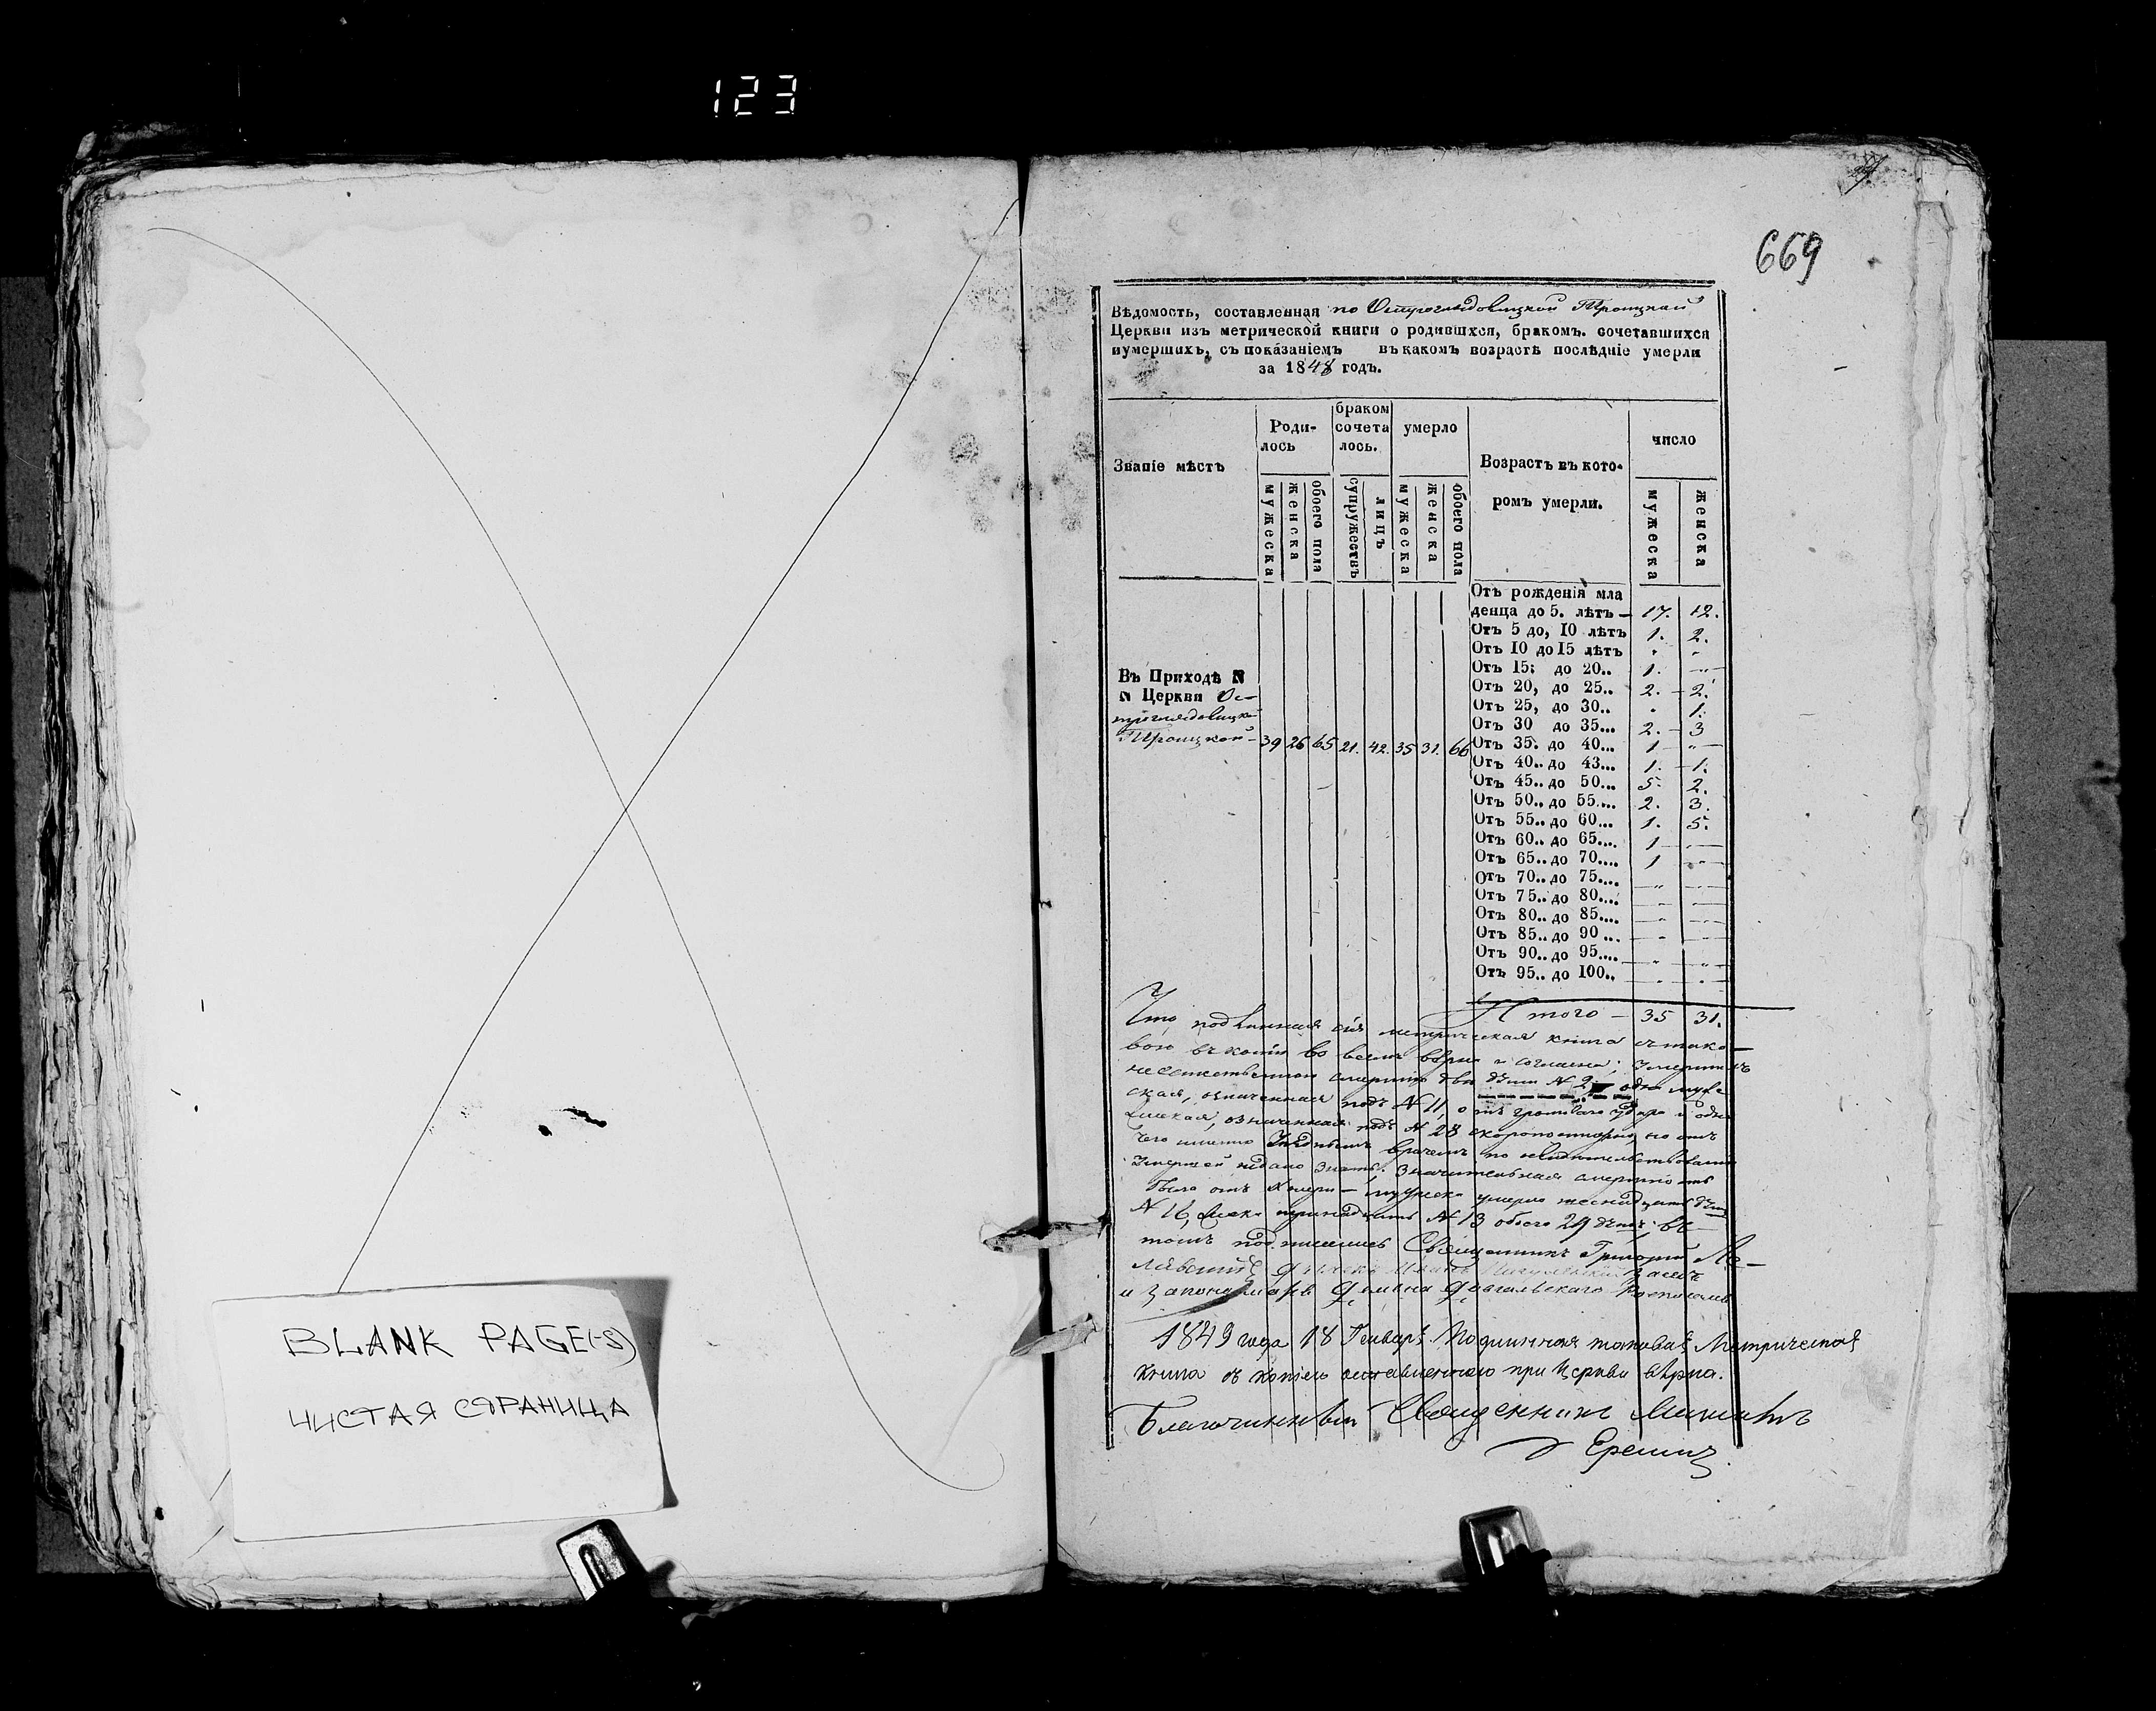 123
669
BLANK PAGE(-S)
ЧИСТАЯ СТРАНИЦА
Вѣдомость, составленная по Остроглядовицкой Троицкой
Церкви изъ метрической книги о родившихся, бракомъ. сочетавшихся
иумершихъ, съ показаніемъ въ какомъ возрастѣ послѣдніе умерли
за 1848 годъ.
Званіе мѣстъ
Роди-
лось
браком
сочета
лось.
умерло
Возрастъ въ кото-
ромъ умерли.
число
мужеска
женска
обоего пола
супружествъ
лицъ
мужеска
женска
обоего пола
мужеска
женска
Въ Приходѣ N
N Церкви Ос-
троглядовицкой
Троицкой - 39 26 65 21. 42. 35 31. 66
Отъ рожденія мла
денца до 5. лѣтъ — 17. 12.
Отъ 5 до, 10 лѣтъ 1. 2.
Отъ 10 до 15 лѣтъ
Отъ 15; до 20.. 1. —
Отъ 20, до 25.. 2. 2.
Отъ 25, до 30.. 1.
Отъ 30 до 35... 2. 3
Отъ 35. до 40... 1 —
Отъ 40.. до 43... 1. 1.
Отъ 45.. до 50... 5. 2.
Отъ 50.. до 55.... 2. 3.
Отъ 55.. до 60... 1. 5.
Отъ 60.. до 65.... 1 —
Отъ 65.. до 70.... 1 —
Отъ 70.. до 75....
Отъ 75.. до 80....
Отъ 80.. до 85....
Отъ 85.. до 90 ...
Отъ 90.. до 95....
Отъ 95.. до 100..
Итого — 35 31.
Что подлинная сія метрическая книга стако-
вою въ копіи во всемъ вѣрна и согласна;
смертію два N 2. одна муже-
ская, означенная подъ N 11, отъ громоваго удара и одна
женская, означенная подъ N 28 скоропостижно, но отъ
чего именно врачемъ по
умершей недано знать. Значительная смертность
была отъ мужеска умерло
N 16, тринадцать N 13 обоего 29
томъ подписались Священникъ Григорій
и
1849 года 18 Генваря. Подлинная таковая Метрическая
книга съ копіею оставленною при Церкви вѣрна.
Благочинный Священникъ
Еремичъ